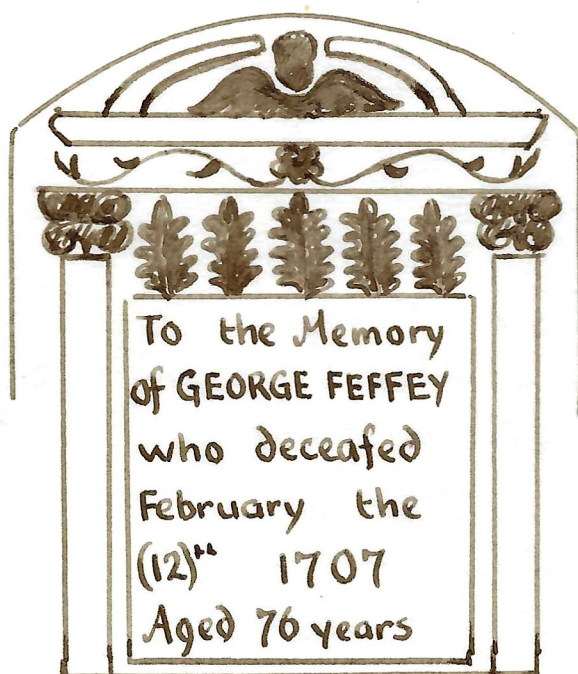 To the Memory
of GEORGE FEFFEY
who deceafed
February the
(12)th 1707
Aged 76 years